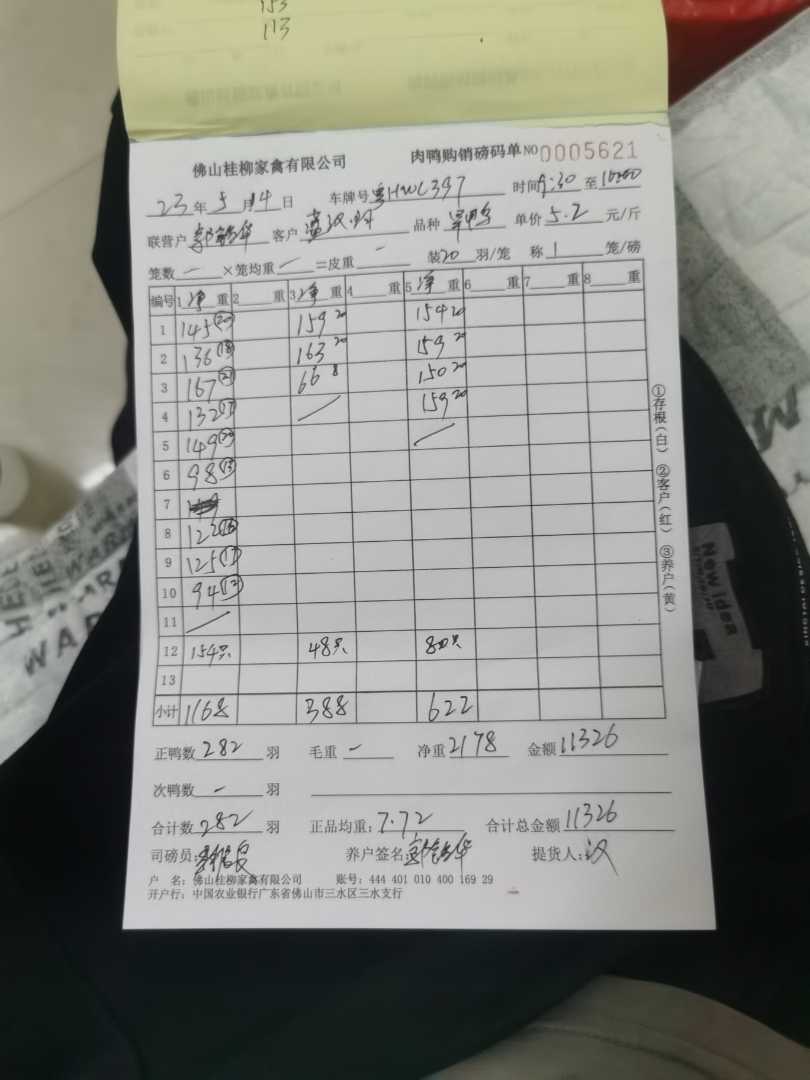 153
113
佛山桂柳家禽有限公司 肉鸭购销磅码单 NO 0005621
23年5月14日 车牌号 粤HWC397 时间 9:30 至
联营户 客户 品种 单价 5.2 元/斤
笼数 — ×笼均重 — =皮重 — 装20 羽/笼 称 1 笼/磅
编号 1 净 重 2 重 3 净 重 4 重 5 净 重 6 重 7 重 8 重
1 145 (20) 159 20 154 20
2 136 (18) 163 20 159 20
3 167 66 8 150 20
4 132 159 20
5 149
6 98
7
8 122
9 125
10 94
11
12 154只 48只 80只
13
小计 1168 388 622
正鸭数 282 羽 毛重 — 净重 2178 金额 11326
次鸭数 — 羽
合计数 282 羽 正品均重: 7.72 合计总金额 11326
司磅员: 养户签名 提货人: 汉
户 名: 佛山桂柳家禽有限公司 账号: 444 401 010 400 169 29
开户行: 中国农业银行广东省佛山市三水区三水支行
①存根(白) ②客户(红) ③养户(黄)
New idea